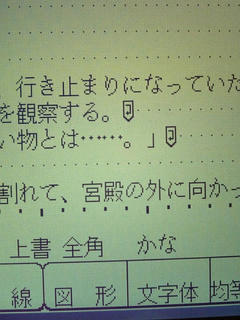 、行き止まりになっていた
を観察する。
い物とは……。」
割れて、宮殿の外に向かっ
上書 全角 かな
線 図形 文字体 均等